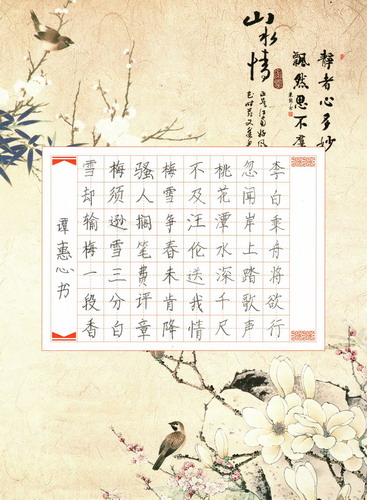 靜者心多妙
飄然思不羣
山水情
李白乘舟将欲行
忽闻岸上踏歌声
桃花潭水深千尺
不及汪伦送我情
梅雪争春未肯降
骚人搁笔费评章
梅须逊雪三分白
雪却输梅一段香
谭惠心书